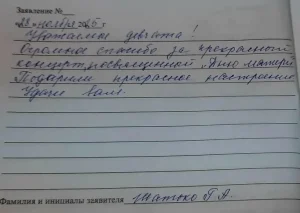 Заявление №
"28" ноября 2015 г
Уважаемые девчата!
Огромное спасибо за прекрасный
концерт, посвященный "Дню матери"
Подарили прекрасное настроение
Удачи вам.
Фамилия и инициалы заявителя Шатько Г.А.